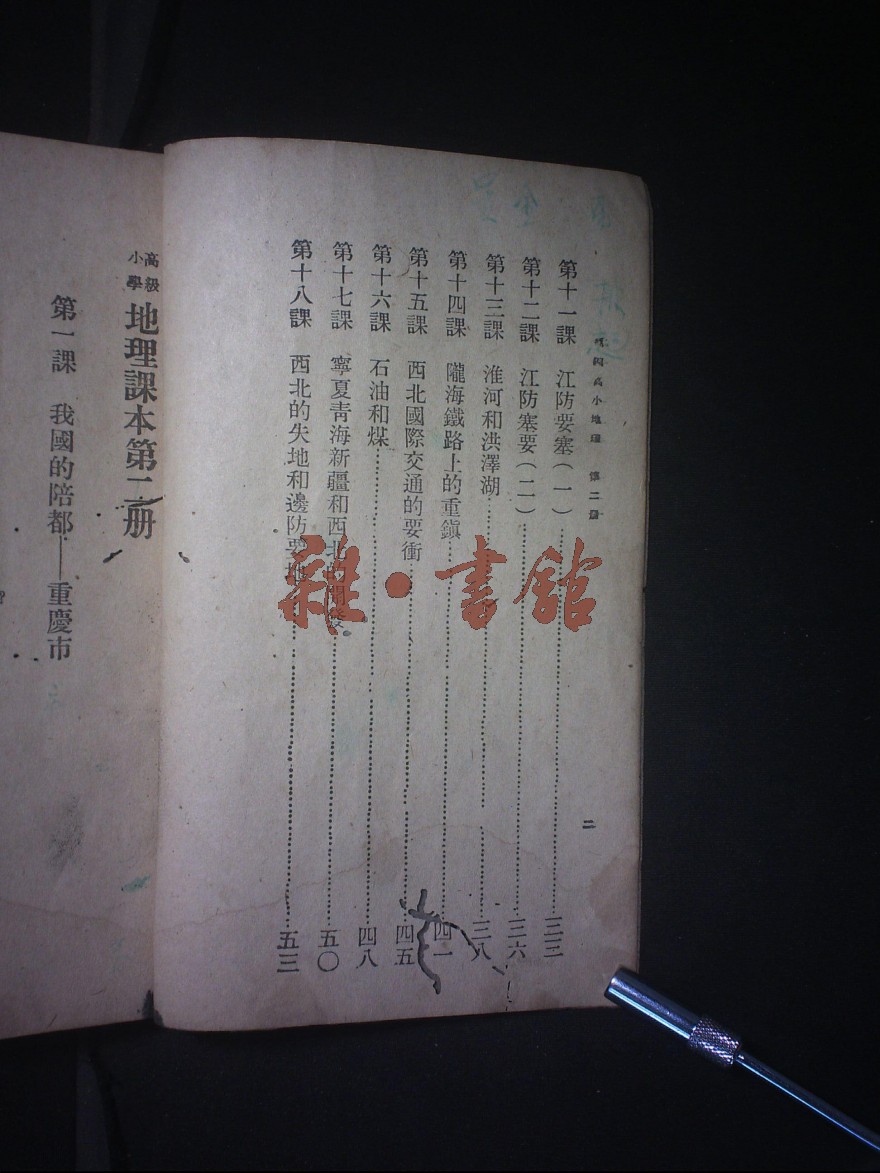 高小地理 第二册
第十一課 江防要塞（一）……三三
第十二課 江防塞要（二）……三六
第十三課 淮河和洪澤湖……三八
第十四課 隴海鐵路上的重鎮……四一
第十五課 西北國際交通的要衝……四五
第十六課 石油和煤……四八
第十七課 寧夏青海新疆和西北……五〇
第十八課 西北的失地和邊防要地……五三
二
高級小學 地理課本第二册
第一課 我國的陪都——重慶市
雜·書館